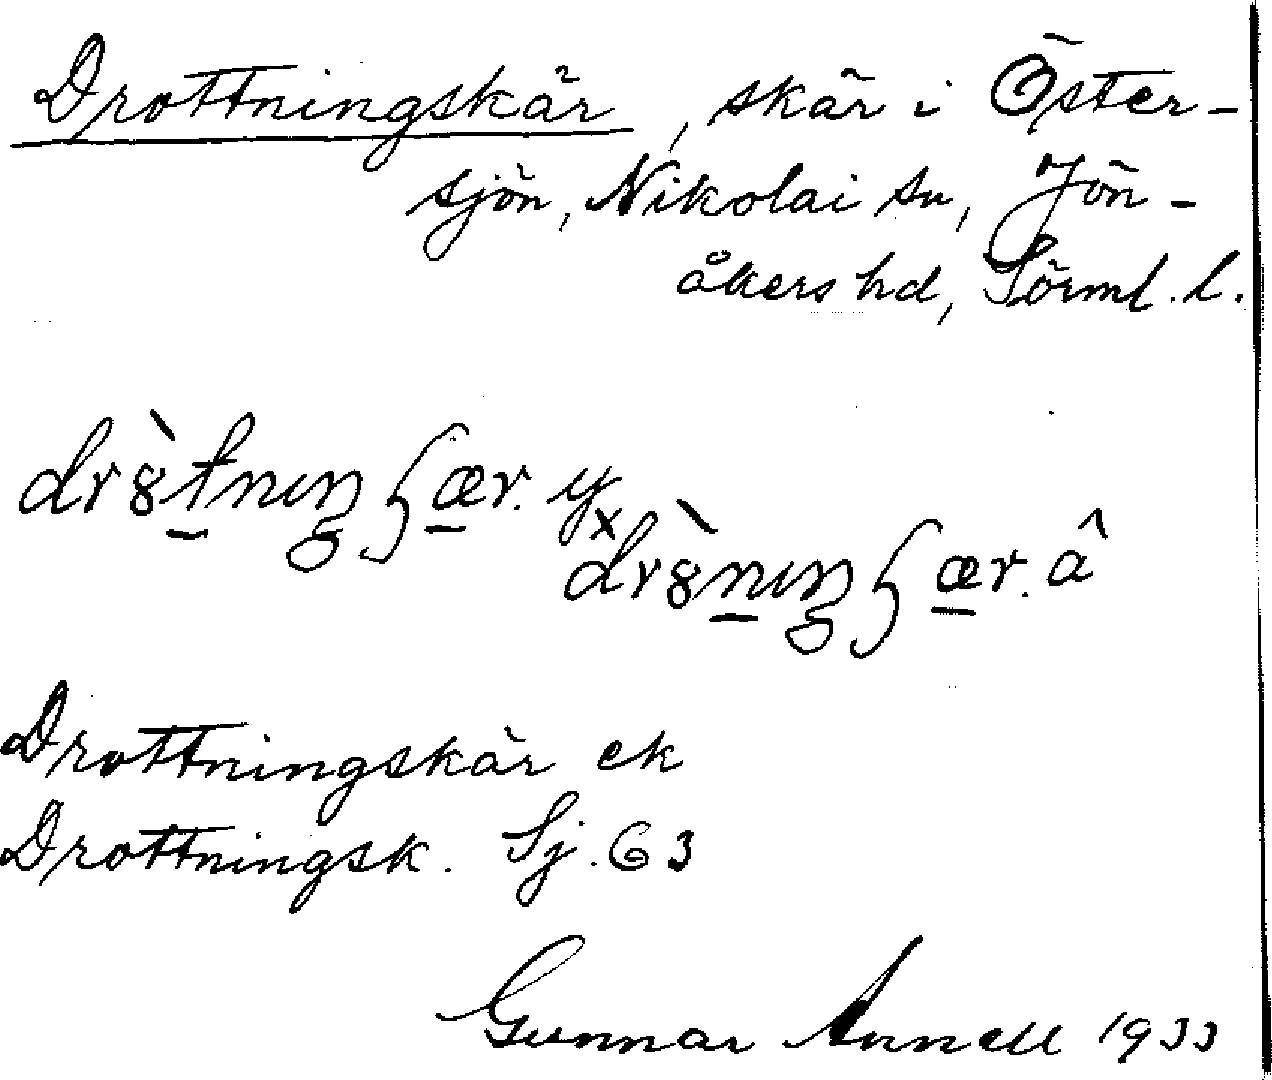 Drottningskär, skär i Öster-
sjön, Nikolai sn, Jön-
åkers hd, Sörml. l.
Drottningskär ek
Drottningsk. Sj. 63
Gunnar Annell 1933